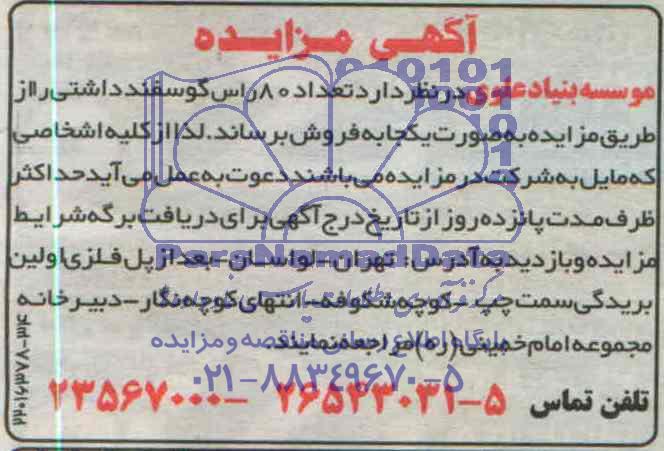 آگهی مزایده
موسسه بنیاد علوی در نظر دارد تعداد ۸۰ راس گوسفند داشتی را از
طریق مزایده به صورت یکجا به فروش برساند. لذا از کلیه اشخاصی
که مایل به شرکت در مزایده می باشند دعوت به عمل می آید حداکثر
ظرف مدت پانزده روز از تاریخ درج آگهی برای دریافت برگه شرایط
مزایده و بازدید به آدرس: تهران-لواسان-بعد از پل فلزی اولین
بریدگی سمت چپ - کوچه شکوفه-انتهای کوچه نگار-دبیرخانه
مجموعه امام خمینی (ره) مراجعه نمایند.
تلفن تماس ۵-۲۶۵۲۳۰۳۱ - ۲۳۵۶۷۰۰۰
ParsNamadData
پایگاه اطلاع رسانی مناقصه و مزایده
۰۲۱-۸۸۳۴۹۶۷۰-۵